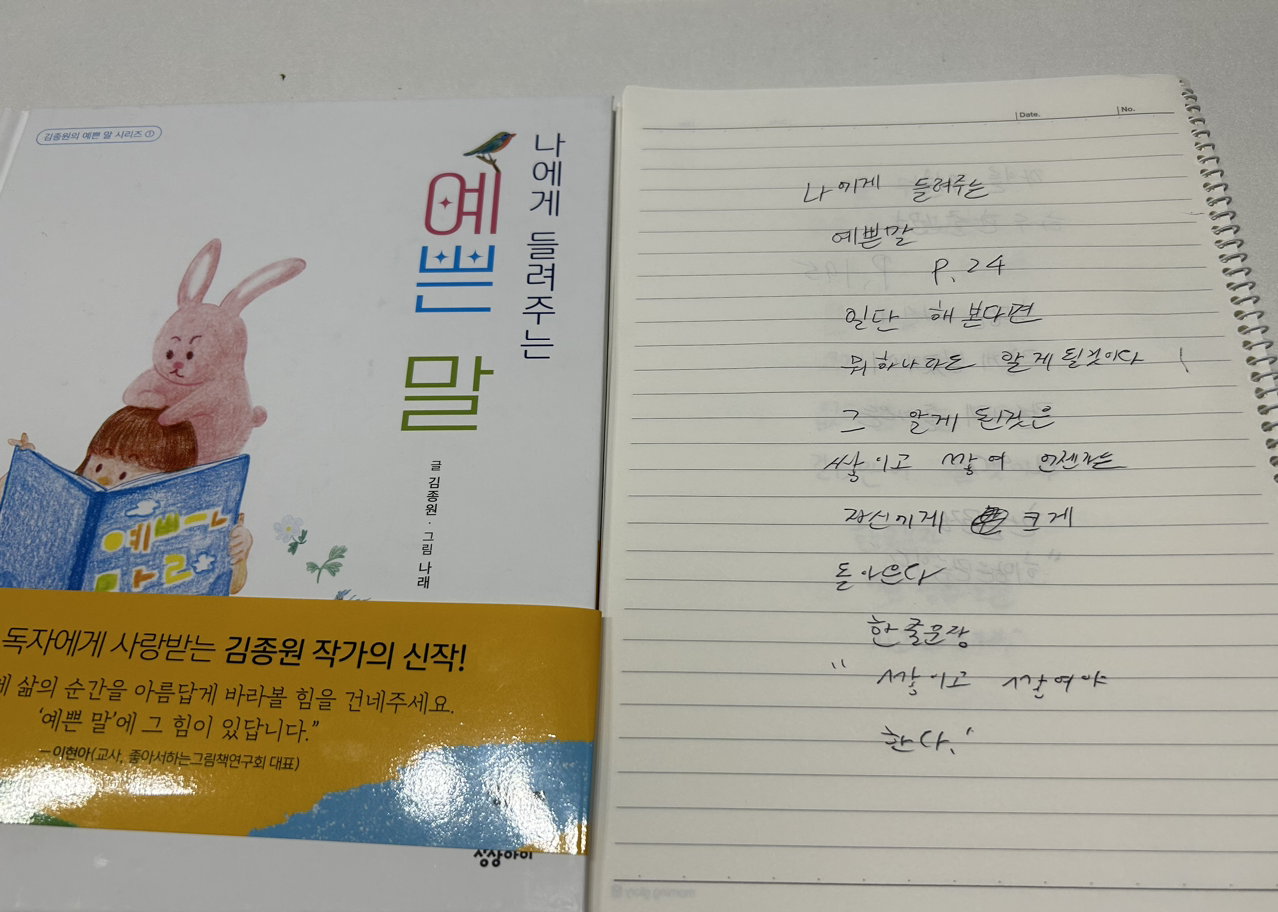 김종원의 예쁜 말 시리즈 ①
나에게 들려주는
예쁜 말
글 김종원 · 그림 나래
예쁘ㄴ
마ㄹ
독자에게 사랑받는 김종원 작가의 신작!
삶의 순간을 아름답게 바라볼 힘을 건네주세요.
‘예쁜 말’에 그 힘이 있답니다.”
― 이현아(교사, 좋아서하는그림책연구회 대표)
상상아이
Date.
No.
나에게 들려주는
예쁜말
P. 24
일단 해 본다면
뭐하나라도 알게 될것이다
그 알게 된것은
쌓이고 쌓여 언젠가는
자신에게 크게
돌아온다
한줄문장
" 쌓이고 쌓여야
한다."
morning glory